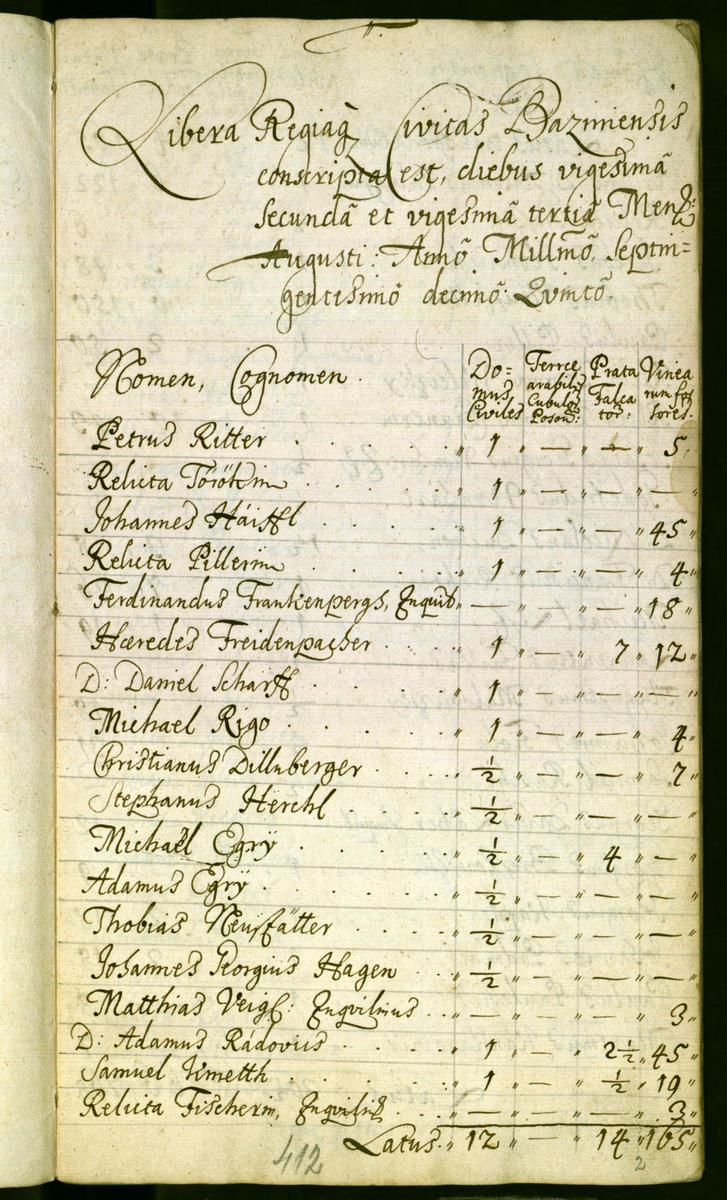 Libera Regiaq̃ Civitas Baziniensis
conscripta est, diebus vigesimâ
secundâ et vigesimâ tertiâ Mens:
Augusti: Annõ Millmõ. Septin=
gentesimô decimô. Qvintô.
Nomen, Cognomen. Do=mus Civiles Terræ arabiles Cubulor Poson: Prata Falca tor: Vinea rum fos sores.
Petrus Ritter „ 1 „ — „ — „ 5 „
Relicta Törökin „ 1 „ — „ — „ — „
Johannes Háiffl „ 1 „ — „ — „ 45 „
Relicta Pillerin „ 1 „ — „ — „ 4 „
Ferdinandus Frankenpergs, Inquil „ — „ — „ — „ 18 „
Hæredes Freidenpacher „ 1 „ — „ 7 „ 12 „
D: Daniel Scharff „ 1 „ — „ — „ — „
Michael Rigo „ 1 „ — „ — „ 4 „
Christianus Dillnberger „ ½ „ — „ — „ 7 „
Stephanus Herchl „ ½ „ — „ — „ — „
Michaël Egrÿ „ ½ „ — „ 4 „ — „
Adamus Egrÿ „ ½ „ — „ — „ — „
Thobias Neusßätter „ ½ „ — „ — „ — „
Johannes Georgius Hagen „ ½ „ — „ — „ — „
Matthias Veigl: Inqvilinus „ — „ — „ — „ 3 „
D: Adamus Radovius „ 1 „ — „ 2½ „ 45 „
Samuel Kmetth „ 1 „ — „ ½ „ 19 „
Relicta Fischerin, Inqvilin „ — „ — „ — „ 3 „
Latus „ 12 „ — „ 14 „ 165 „
412 2